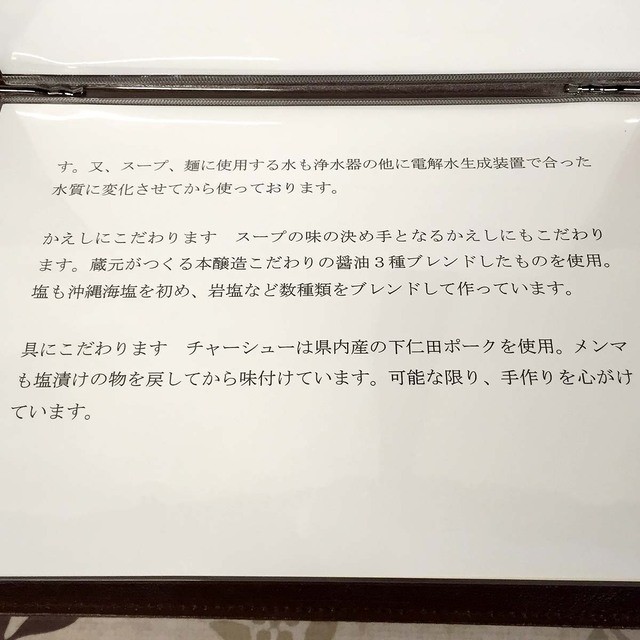 す。又、スープ、麺に使用する水も浄水器の他に電解水生成装置で合った
水質に変化させてから使っております。
かえしにこだわります　スープの味の決め手となるかえしにもこだわり
ます。蔵元がつくる本醸造こだわりの醤油３種ブレンドしたものを使用。
塩も沖縄海塩を初め、岩塩など数種類をブレンドして作っています。
具にこだわります　チャーシューは県内産の下仁田ポークを使用。メンマ
も塩漬けの物を戻してから味付けています。可能な限り、手作りを心がけ
ています。